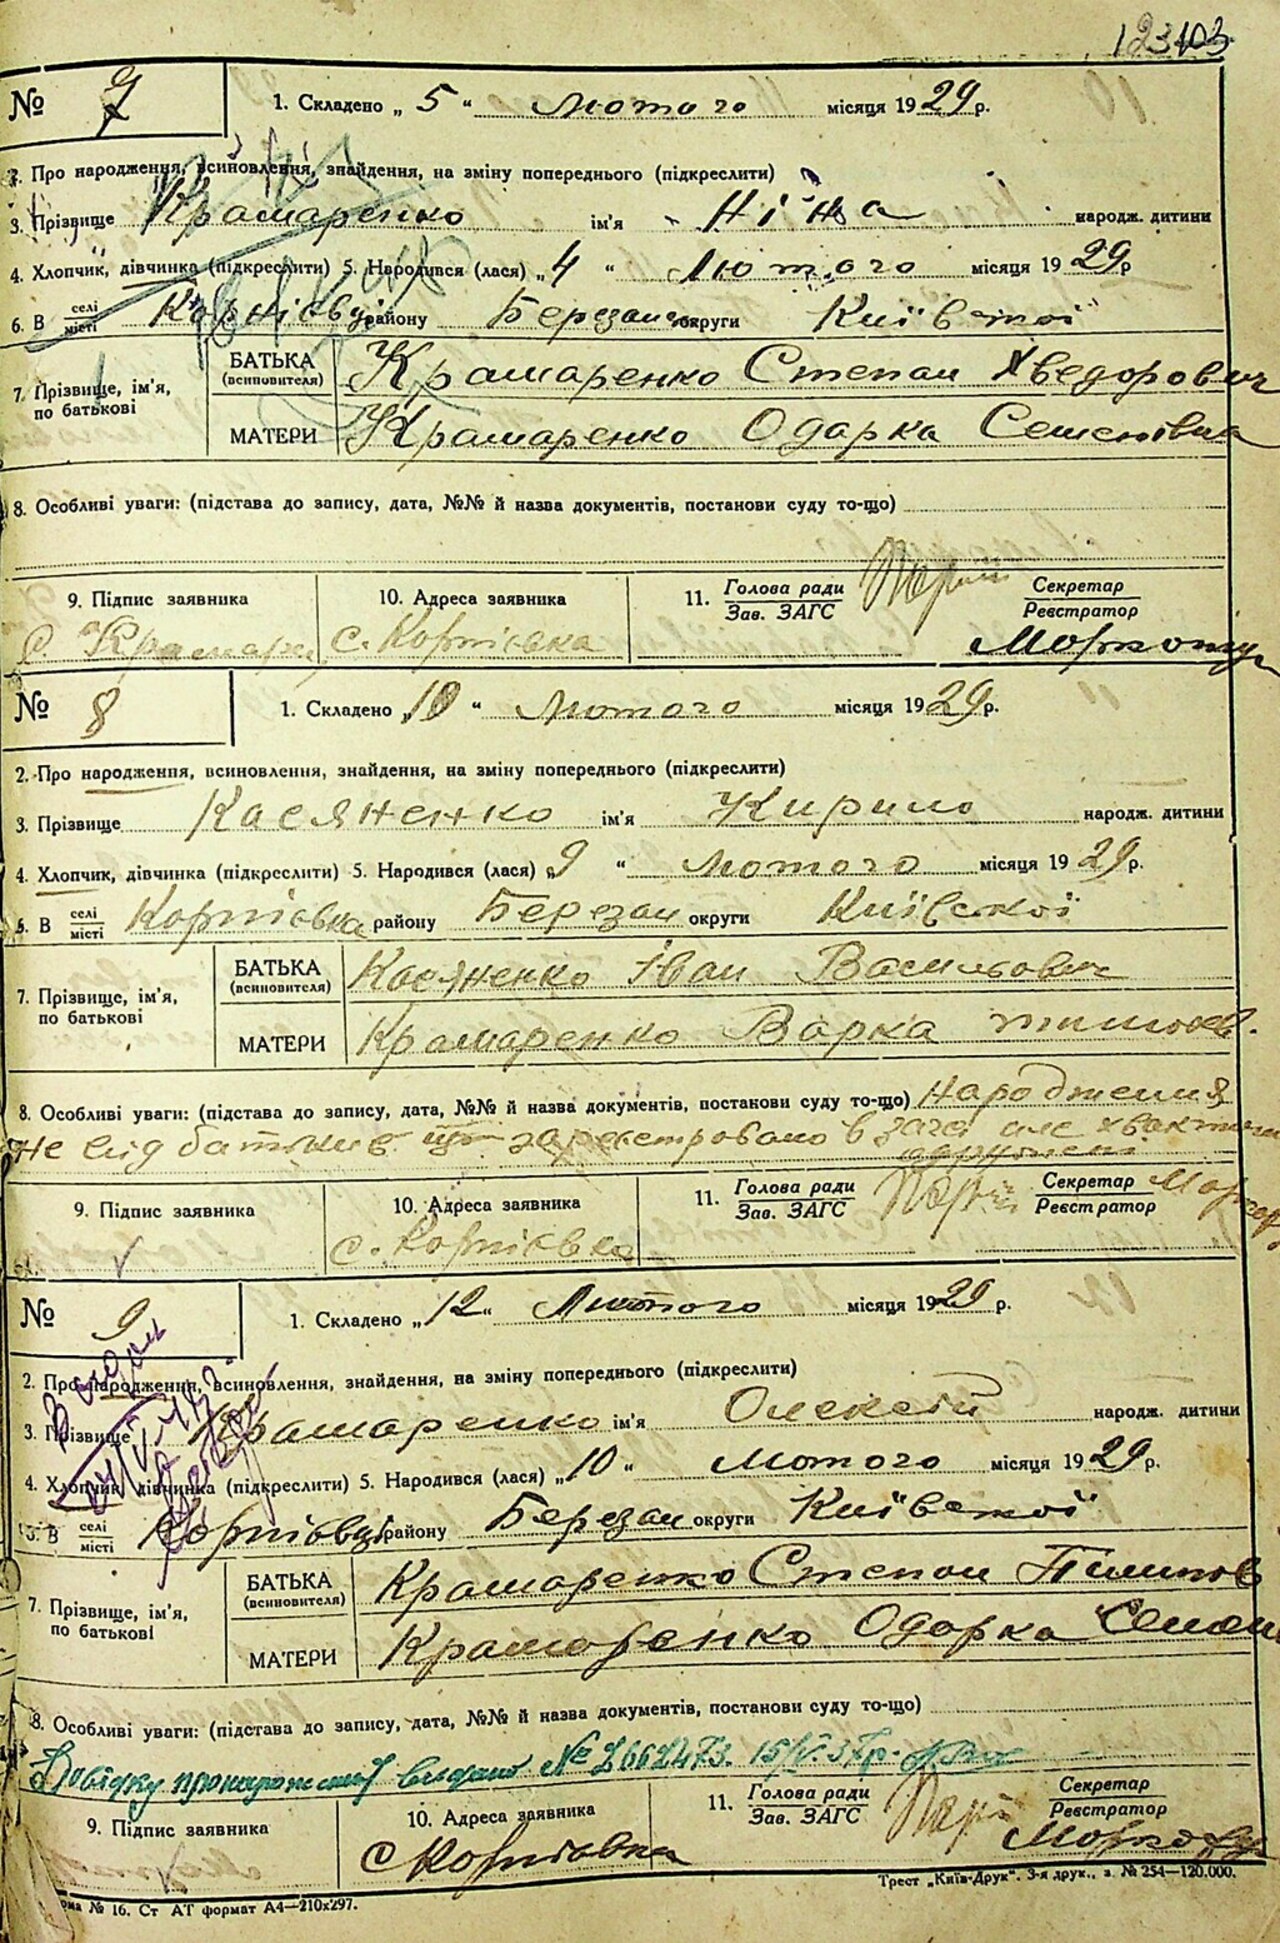 123 103
№ 7 1. Складено „ 5 “ лютого місяця 1929 р.
2. Про народження, всиновлення, знайдення, на зміну попереднього (підкреслити)
3. Прізвище Крамаренко ім'я Ніна народж. дитини
4. Хлопчик, дівчинка (підкреслити) 5. Народився (лася) „ 4 “ Лютого місяця 1929 р
6. В селі місті Корнієвці району Березан округи Київської
7. Прізвище, ім'я, по батькові
БАТЬКА (всиновителя) Крамаренко Степан Хведорович
МАТЕРИ Крамаренко Одарка Семенівна
8. Особливі уваги: (підстава до запису, дата, №№ й назва документів, постанови суду то-що)
9. Підпис заявника 10. Адреса заявника 11. Голова ради Зав. ЗАГС Секретар Реєстратор
с. Корнієвка
№ 8 1. Складено „ 10 “ лютого місяця 1929 р.
2. Про народження, всиновлення, знайдення, на зміну попереднього (підкреслити)
3. Прізвище Касяненко ім'я Кирило народж. дитини
4. Хлопчик, дівчинка (підкреслити) 5. Народився (лася) „ 9 “ лютого місяця 1929 р.
6. В селі місті Корнієвка району Березан округи Київської
7. Прізвище, ім'я, по батькові
БАТЬКА (всиновителя) Касяненко Іван Васильович
МАТЕРИ Крамаренко Варка
8. Особливі уваги: (підстава до запису, дата, №№ й назва документів, постанови суду то-що) Народження
не від батьків зареєстровано в загсі але
9. Підпис заявника 10. Адреса заявника 11. Голова ради Зав. ЗАГС Секретар Реєстратор
с. Корнієвка
№ 9 1. Складено „ 12 “ Лютого місяця 1929 р.
2. Про народження, всиновлення, знайдення, на зміну попереднього (підкреслити)
3. Прізвище Крамаренко ім'я Олексій народж. дитини
4. Хлопчик, дівчинка (підкреслити) 5. Народився (лася) „ 10 “ лютого місяця 1929 р.
В селі місті Корнієвці району Березан округи Київської
7. Прізвище, ім'я, по батькові
БАТЬКА (всиновителя) Крамаренко Степан Пилипов
МАТЕРИ Крамаренко Одарка
8. Особливі уваги: (підстава до запису, дата, №№ й назва документів, постанови суду то-що)
Довідку про народження видано № 2662473. 15/V.37р.
9. Підпис заявника 10. Адреса заявника 11. Голова ради Зав. ЗАГС Секретар Реєстратор
с Корнієвка
Трест „Київ-Друк“. 3-я друк., з. № 254—120.000.
№ 16. Ст АТ формат А4—210х297.